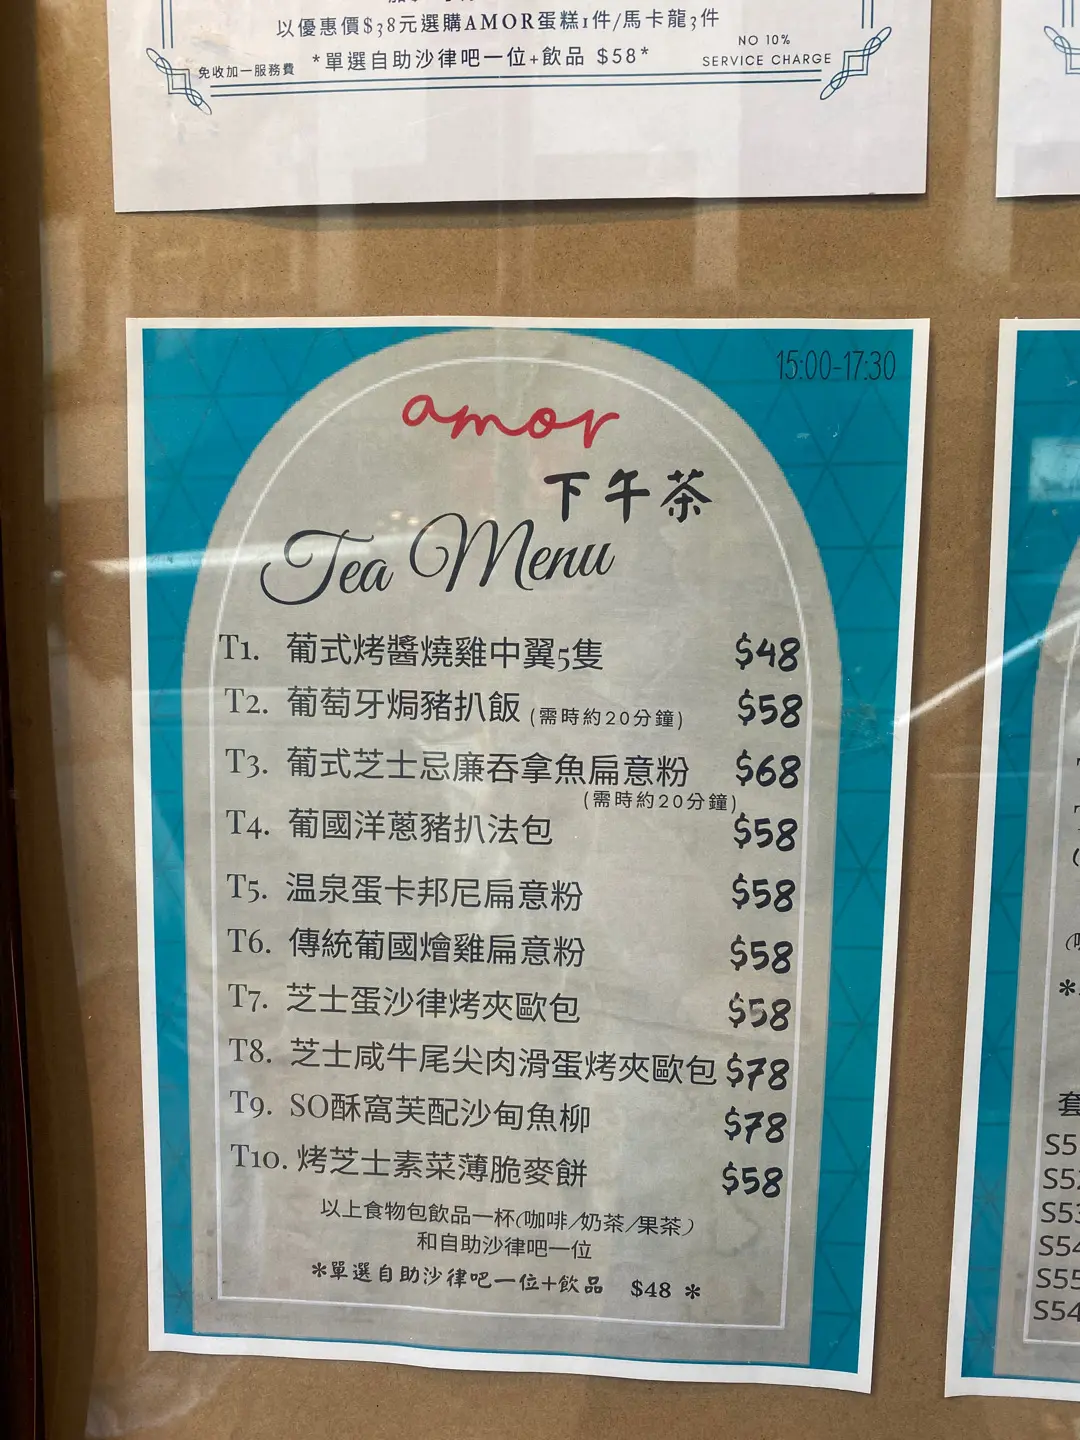 以優惠價$38元選購AMOR蛋糕1件/馬卡龍3件
免收加一服務費 *單選自助沙律吧一位+飲品 $58*
NO 10%
SERVICE CHARGE
15:00-17:30
amor
下午茶
Tea Menu
T1. 葡式烤醬燒雞中翼5隻 $48
T2. 葡萄牙焗豬扒飯 (需時約20分鐘) $58
T3. 葡式芝士忌廉吞拿魚扁意粉 $68
(需時約20分鐘)
T4. 葡國洋蔥豬扒法包 $58
T5. 温泉蛋卡邦尼扁意粉 $58
T6. 傳統葡國燴雞扁意粉 $58
T7. 芝士蛋沙律烤夾歐包 $58
T8. 芝士咸牛尾尖肉滑蛋烤夾歐包 $78
T9. SO酥窩芙配沙甸魚柳 $78
T10. 烤芝士素菜薄脆麥餅 $58
以上食物包飲品一杯(咖啡/奶茶/果茶)
和自助沙律吧一位
*單選自助沙律吧一位+飲品 $48 *
套
S5
S52
S53
S54
S55
S54